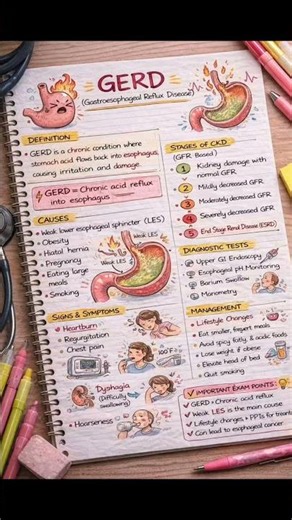 GERD
(Gastroesophageal Reflux Disease)
DEFINITION
• GERD is a chronic condition where
stomach acid flows back into esophagus,
causing irritation and damage.
GERD = Chronic acid reflux
into esophagus
CAUSES
• Weak lower esophageal sphincter (LES)
• Obesity
• Hiatal hernia
• Pregnancy
• Eating large
meals
• Smoking
Weak LES
Weak LES
SIGNS & SYMPTOMS
• Heartburn
• Regurgitation
• Chest pain
100°F
• Dysphagia
(Difficulty
swallowing)
• Hoarseness
STAGES OF CKD
(GFR Based)
1 Kidney damage with
normal GFR
2 Mildly decreased GFR
3 Moderately decreased GFR
4 Severely decreased GFR
5 End Stage Renal Disease (ESRD)
DIAGNOSTIC TESTS
• Upper GI Endoscopy
• Esophageal pH Monitoring
• Barium Swallow
• Manometry
MANAGEMENT
• Lifestyle Changes
• Eat smaller, frequent meals
• Avoid spicy, fatty, & acidic foods
• Lose weight if obese
• Elevate head of bed
• Quit smoking
✓ IMPORTANT EXAM POINTS
✓ GERD = Chronic acid reflux
✓ Weak LES is the main cause
✓ Lifestyle changes + PPIs for
✓ Can lead to esophageal cancer